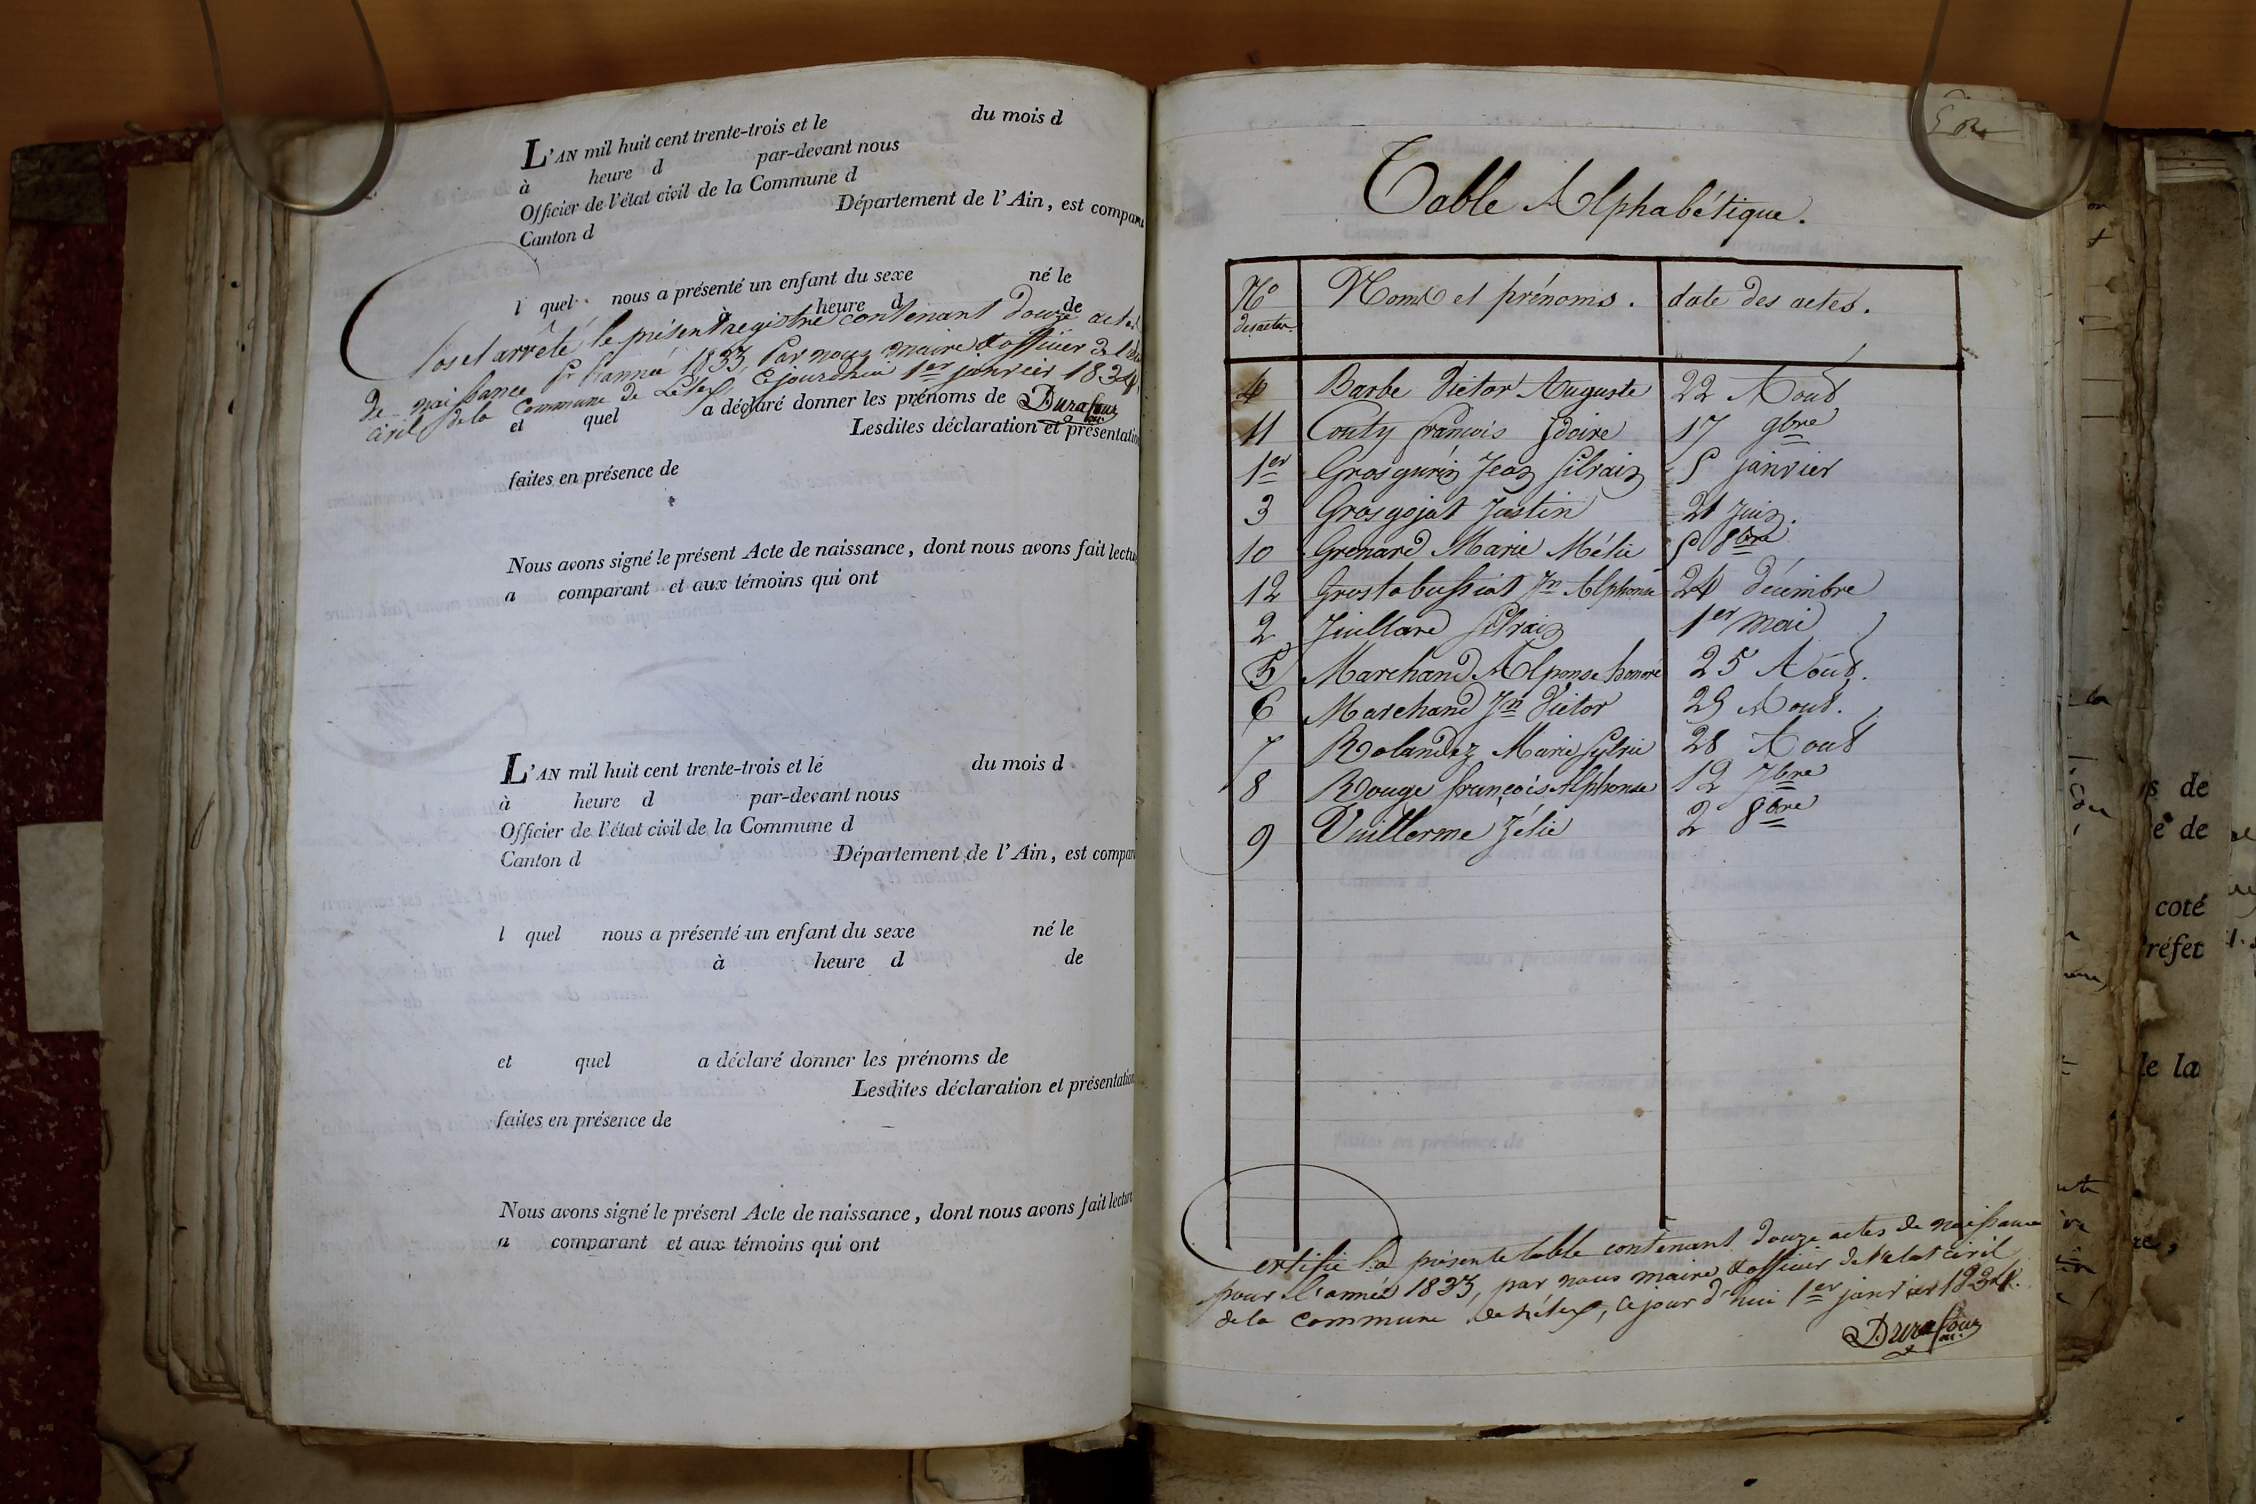 L'AN mil huit cent trente-trois et le du mois d
à heure d par-devant nous
Officier de l'état civil de la Commune d
Canton d Département de l'Ain, est comparu
l quel nous a présenté un enfant du sexe né le
à heure d de
Clos et arrêté le présent registre contenant douze actes
de naissance pr l'année 1833, Par nous maire & officier de l'état
civil de la commune de Lélex, Cejourd'hui 1er janvier 1834,
et quel a déclaré donner les prénoms de Durafour
Lesdites déclaration et présentation
faites en présence de
Nous avons signé le présent Acte de naissance, dont nous avons fait lecture
a comparant et aux témoins qui ont
L'AN mil huit cent trente-trois et le du mois d
à heure d par-devant nous
Officier de l'état civil de la Commune d
Canton d Département de l'Ain, est comparu
l quel nous a présenté un enfant du sexe né le
à heure d de
et quel a déclaré donner les prénoms de
Lesdites déclaration et présentation
faites en présence de
Nous avons signé le présent Acte de naissance, dont nous avons fait lecture
a comparant et aux témoins qui ont
Table Alphabétique.
No des actes. Noms et prénoms. date des actes.
4 Barbe Victor Auguste 22 Aout
11 Couty françois Idoire 17 9bre
1er Grosgurin Jean Silvain 5 janvier
3 Grosgojat Justin 21 Juin.
10 Grenard Marie Mélie 5 8bre
12 Grostabussiat Jn Alphonse 24 décembre
2 Juillard Silvain 1er mai
5 Marchand Alponse honoré 25 Aout.
6 Marchand Jn Victor 25 Aout.
7 Rolandez Marie Sylvie 28 Aout
8 Rouge françois Alphonse 12 7bre
9 Vuillerme Zélie 2 8bre
Certifié la présente table contenant douze actes de naissance
pour l'année 1833, par nous maire & officier de l'état civil
de la commune de Lélex, cejour d'hui 1er janvier 1834.
Durafour